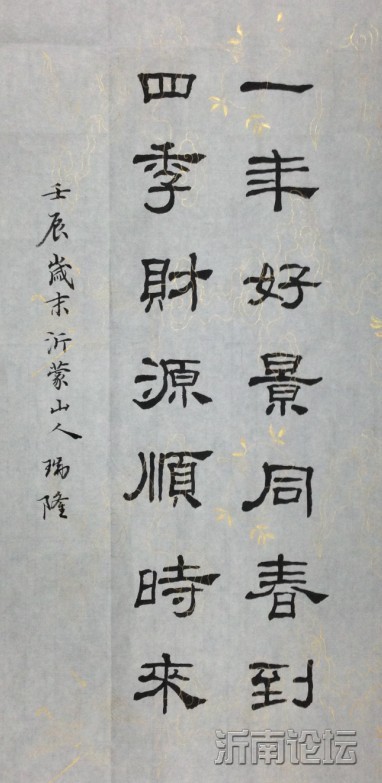 一年好景同春到
四季財源順時來
壬辰歲末沂蒙山人瑞隆
沂南论坛